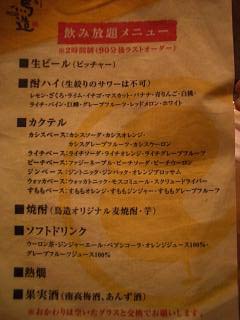 飲み放題メニュー
※2時間制(90分後ラストオーダー)
■生ビール(ピッチャー)
■酎ハイ(生絞りのサワーは不可)
レモン・ざくろ・ライム・イチゴ・マスカット・バナナ・青りんご・白桃・
ライチ・パイン・巨峰・グレープフルーツ・レッドメロン・ホワイト
■カクテル
カシスベース:カシスソーダ・カシスオレンジ・
カシスグレープフルーツ・カシスウーロン
ライチベース:ライチソーダ・ライチオレンジ・ライチグレープフルーツ
ピーチベース:ファジーネーブル・ピーチソーダ・ピーチウーロン
ジンベース:ジントニック・ジンバック・オレンジブロッサム
ウォッカベース:ウォッカトニック・モスコミュール・スクリュードライバー
すももベース:すももオレンジ・すももジンジャー・すももグレープフルーツ
■焼酎(鳥造オリジナル麦焼酎・芋)
■ソフトドリンク
ウーロン茶・ジンジャーエール・ペプシコーラ・オレンジジュース100%・
グレープフルーツジュース100%
■熱燗
■果実酒(南高梅酒、あんず酒)
※おかわりは空いたグラスと交換でお願いします。